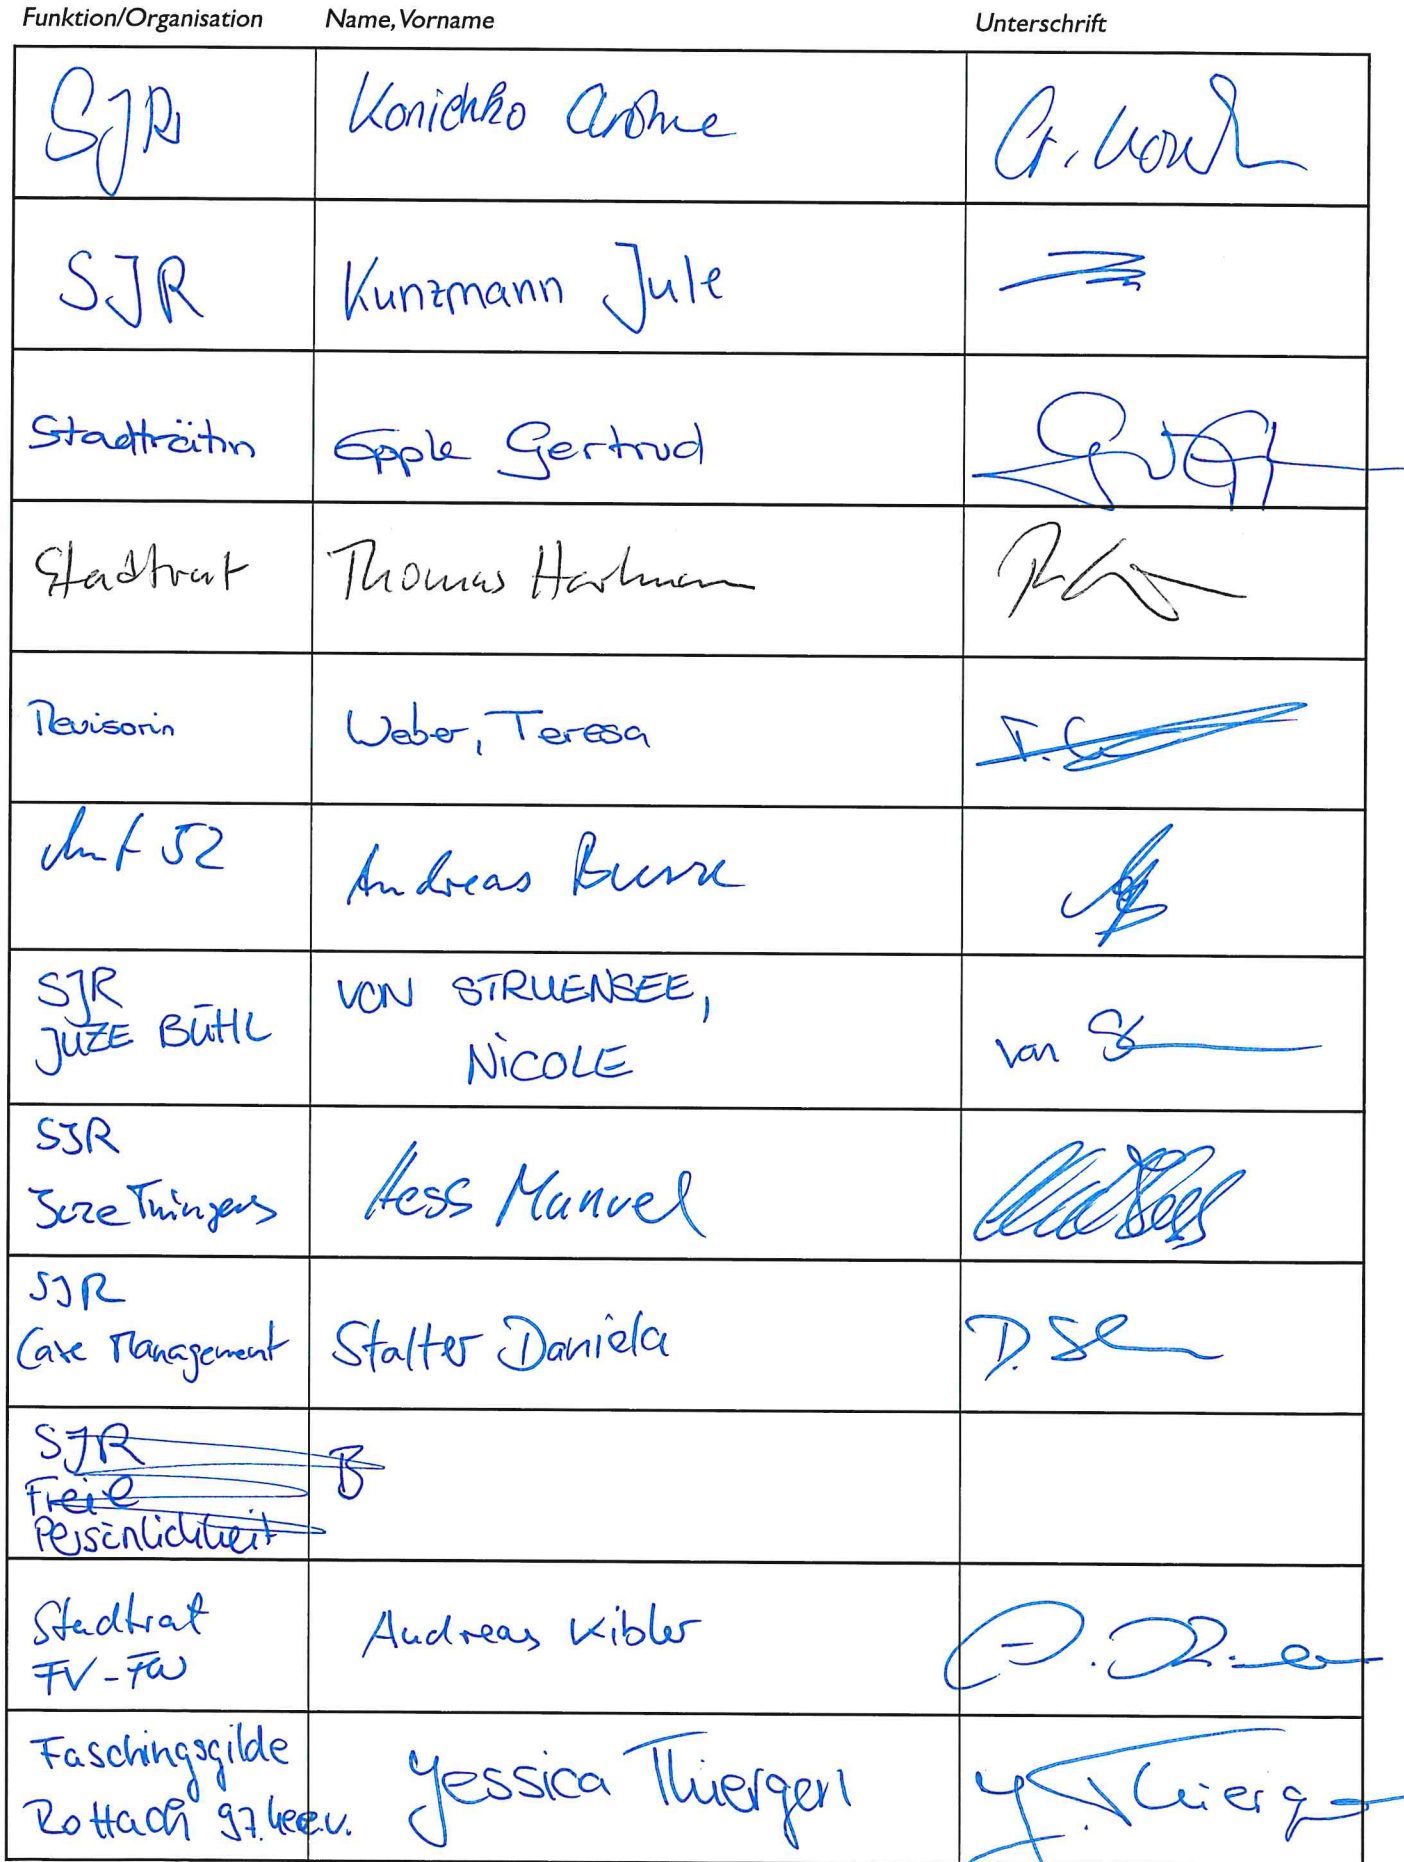 Funktion/Organisation Name, Vorname Unterschrift
SJR Konichko
SJR Kunzmann Jule
Stadträtin Epple Gertrud
Stadtrat Thomas Hartmann
Revisorin Weber, Teresa T.
Amt 52 Andreas
SJR VON STRUENSEE,
JUZE BÜHL NICOLE von
SJR
Juze Thingers Hess Manuel
SJR
Case Management Stalter Daniela D.
SJR B
Freie
Persönlichkeit
Stadtrat Andreas Kibler A.
FV-FW
Faschingsgilde Jessica
Rottach 97. e.V.